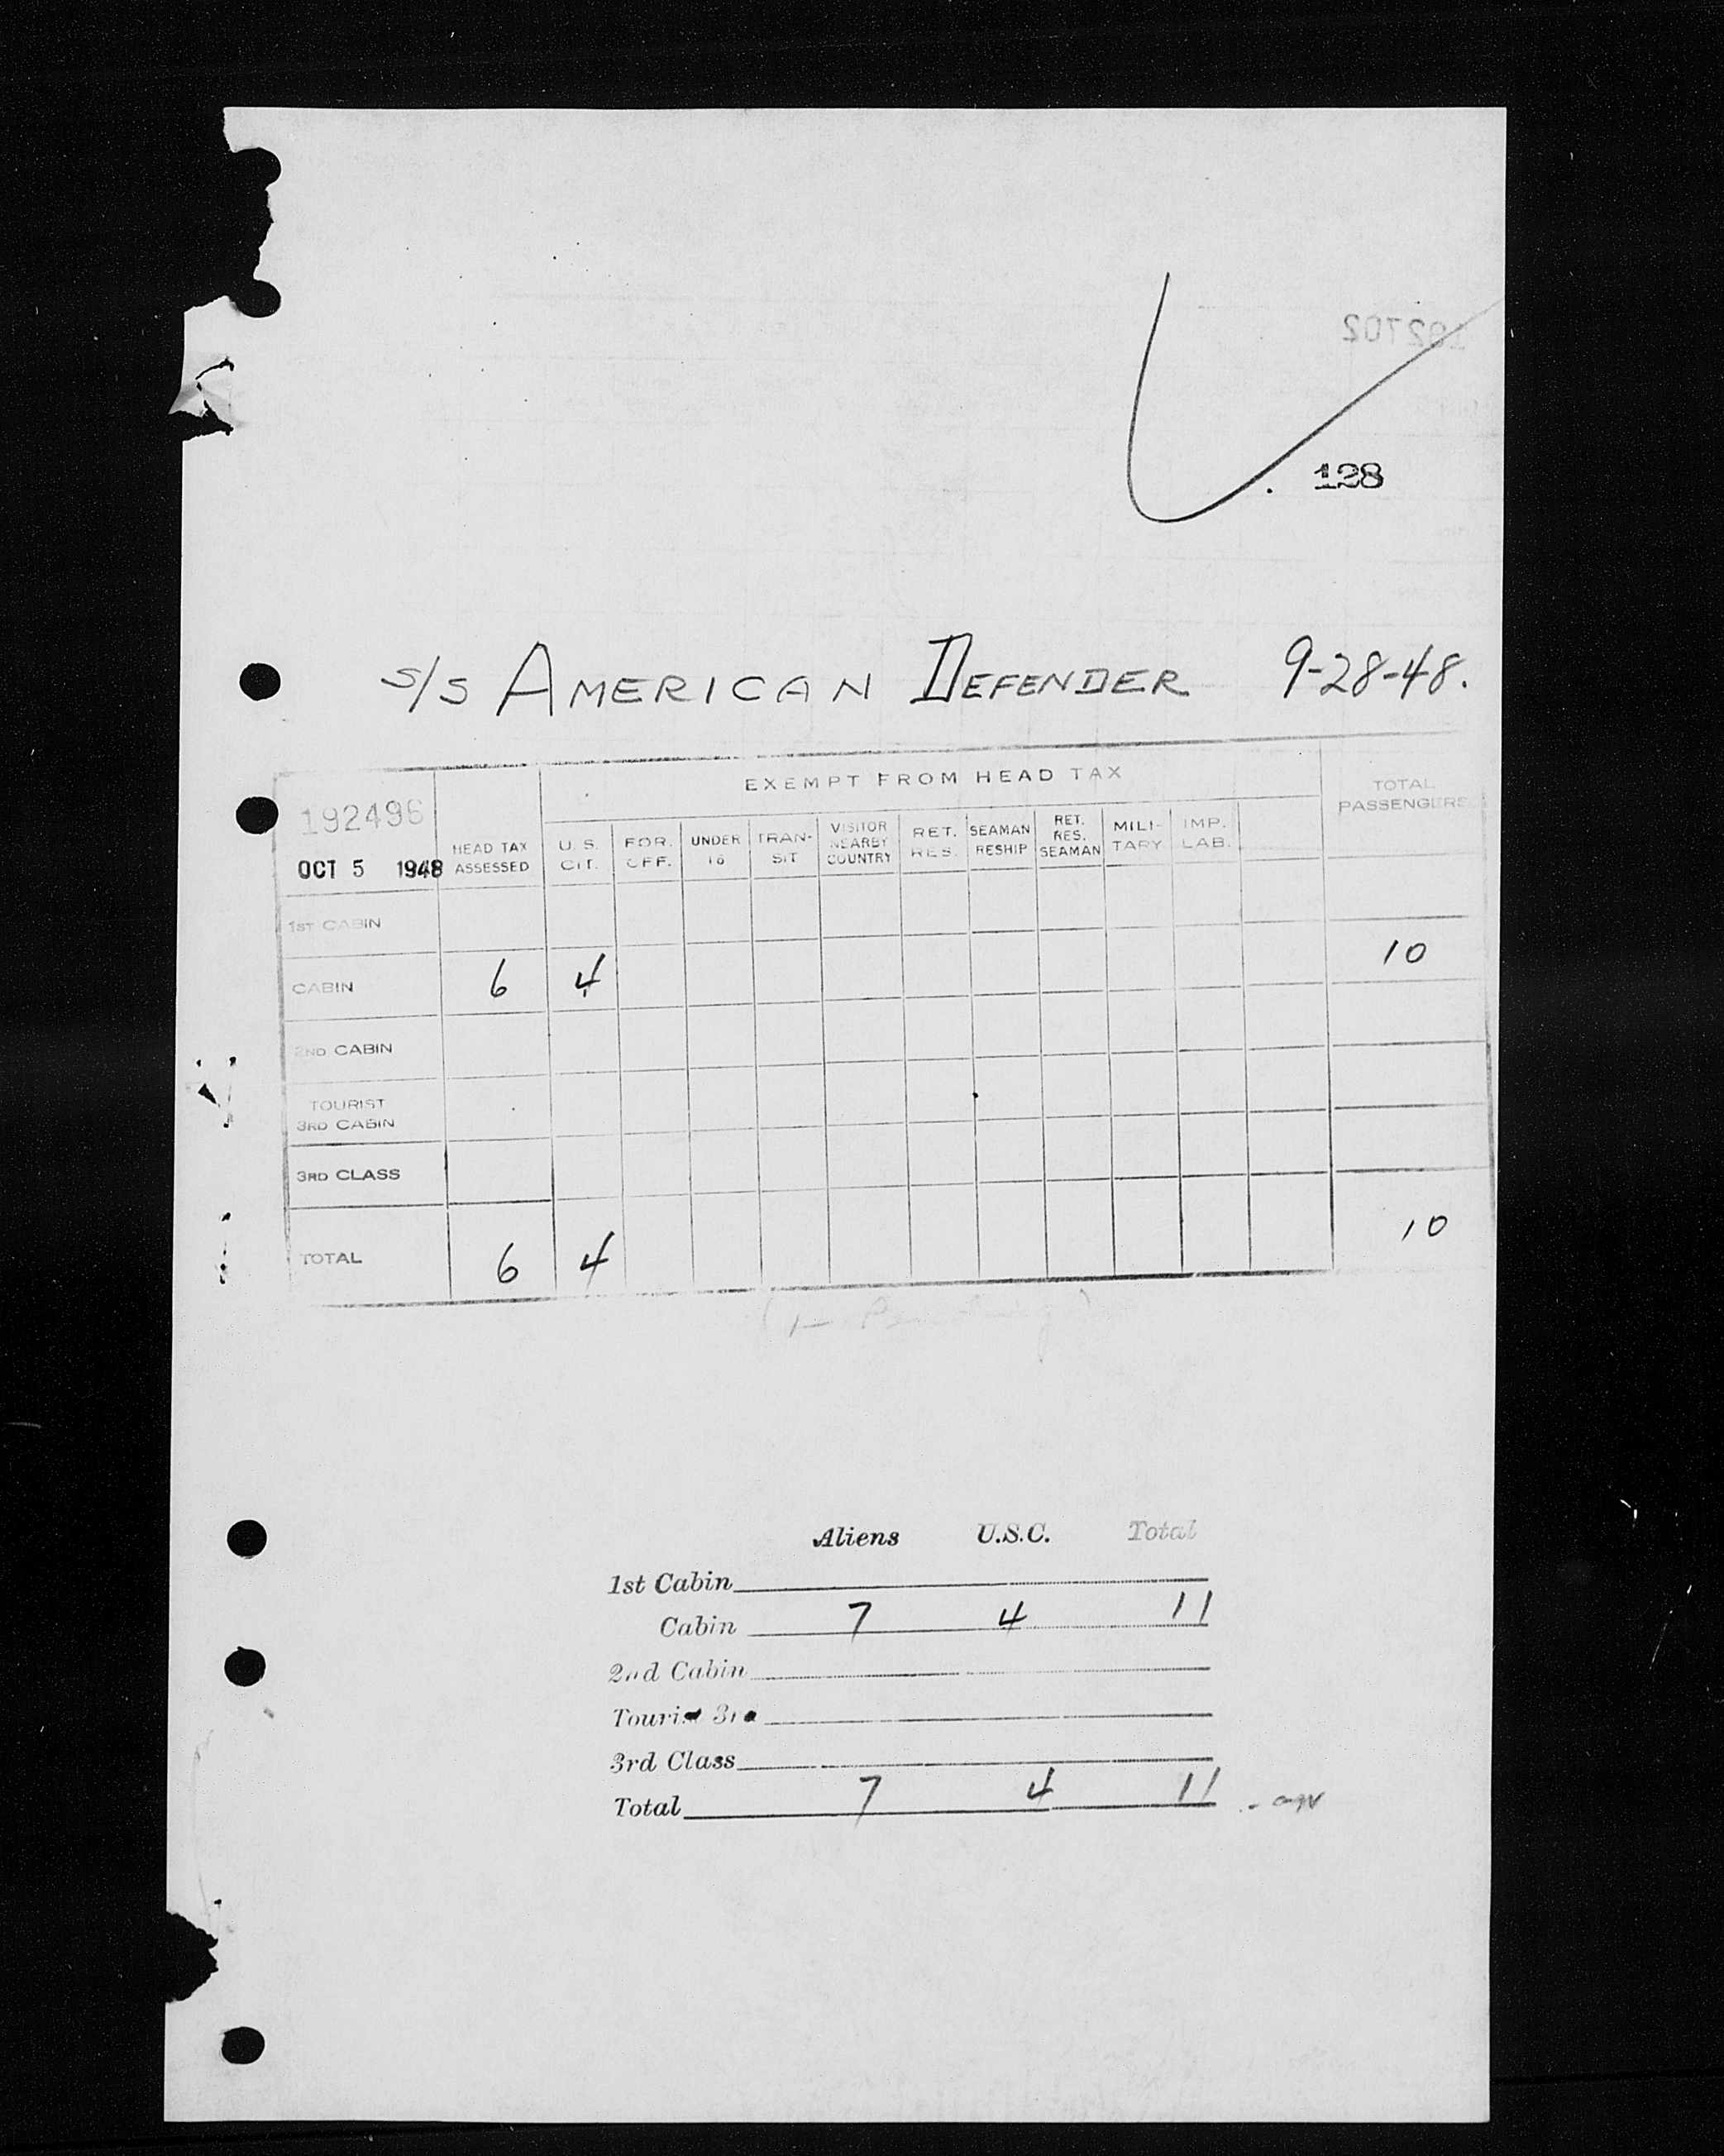 192702
128
s/s AMERICAN DEFENDER 9-28-48.
EXEMPT FROM HEAD TAX
192496
OCT 5 1948
HEAD TAX ASSESSED
U. S. CIT.
FOR. OFF.
UNDER 16
TRANSIT
VISITOR NEARBY COUNTRY
RET. RES.
SEAMAN RESHIP
RET. RES. SEAMAN
MILITARY
IMP. LAB.
TOTAL PASSENGERS
1ST CABIN
CABIN 6 4 10
2ND CABIN
TOURIST
3RD CABIN
3RD CLASS
TOTAL 6 4 10
Aliens U.S.C. Total
1st Cabin
Cabin 7 4 11
2nd Cabin
Tourist 3rd
3rd Class
Total 7 4 11